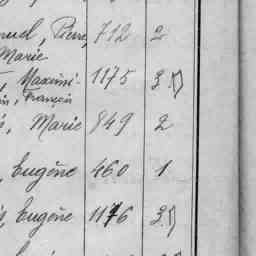 nuel, Pierre, 712 2
Marie
, Maximi- 1175 3.
in, François
s, Marie 849 2
, Eugène 460 1
s, Eugène 1176 3.